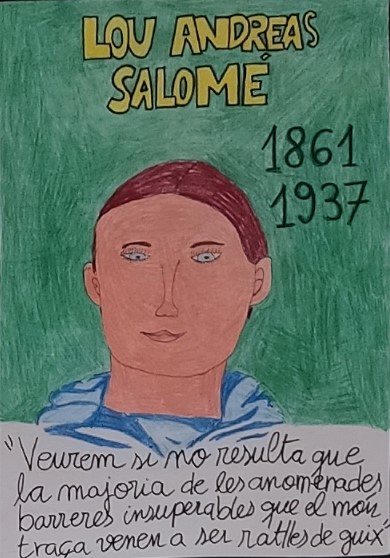 LOU ANDREAS
SALOMÉ
1861
1937
"Veurem si no resulta que
la majoria de les anomenades
barreres insuperables que el món
traça venen a ser ratlles de guix